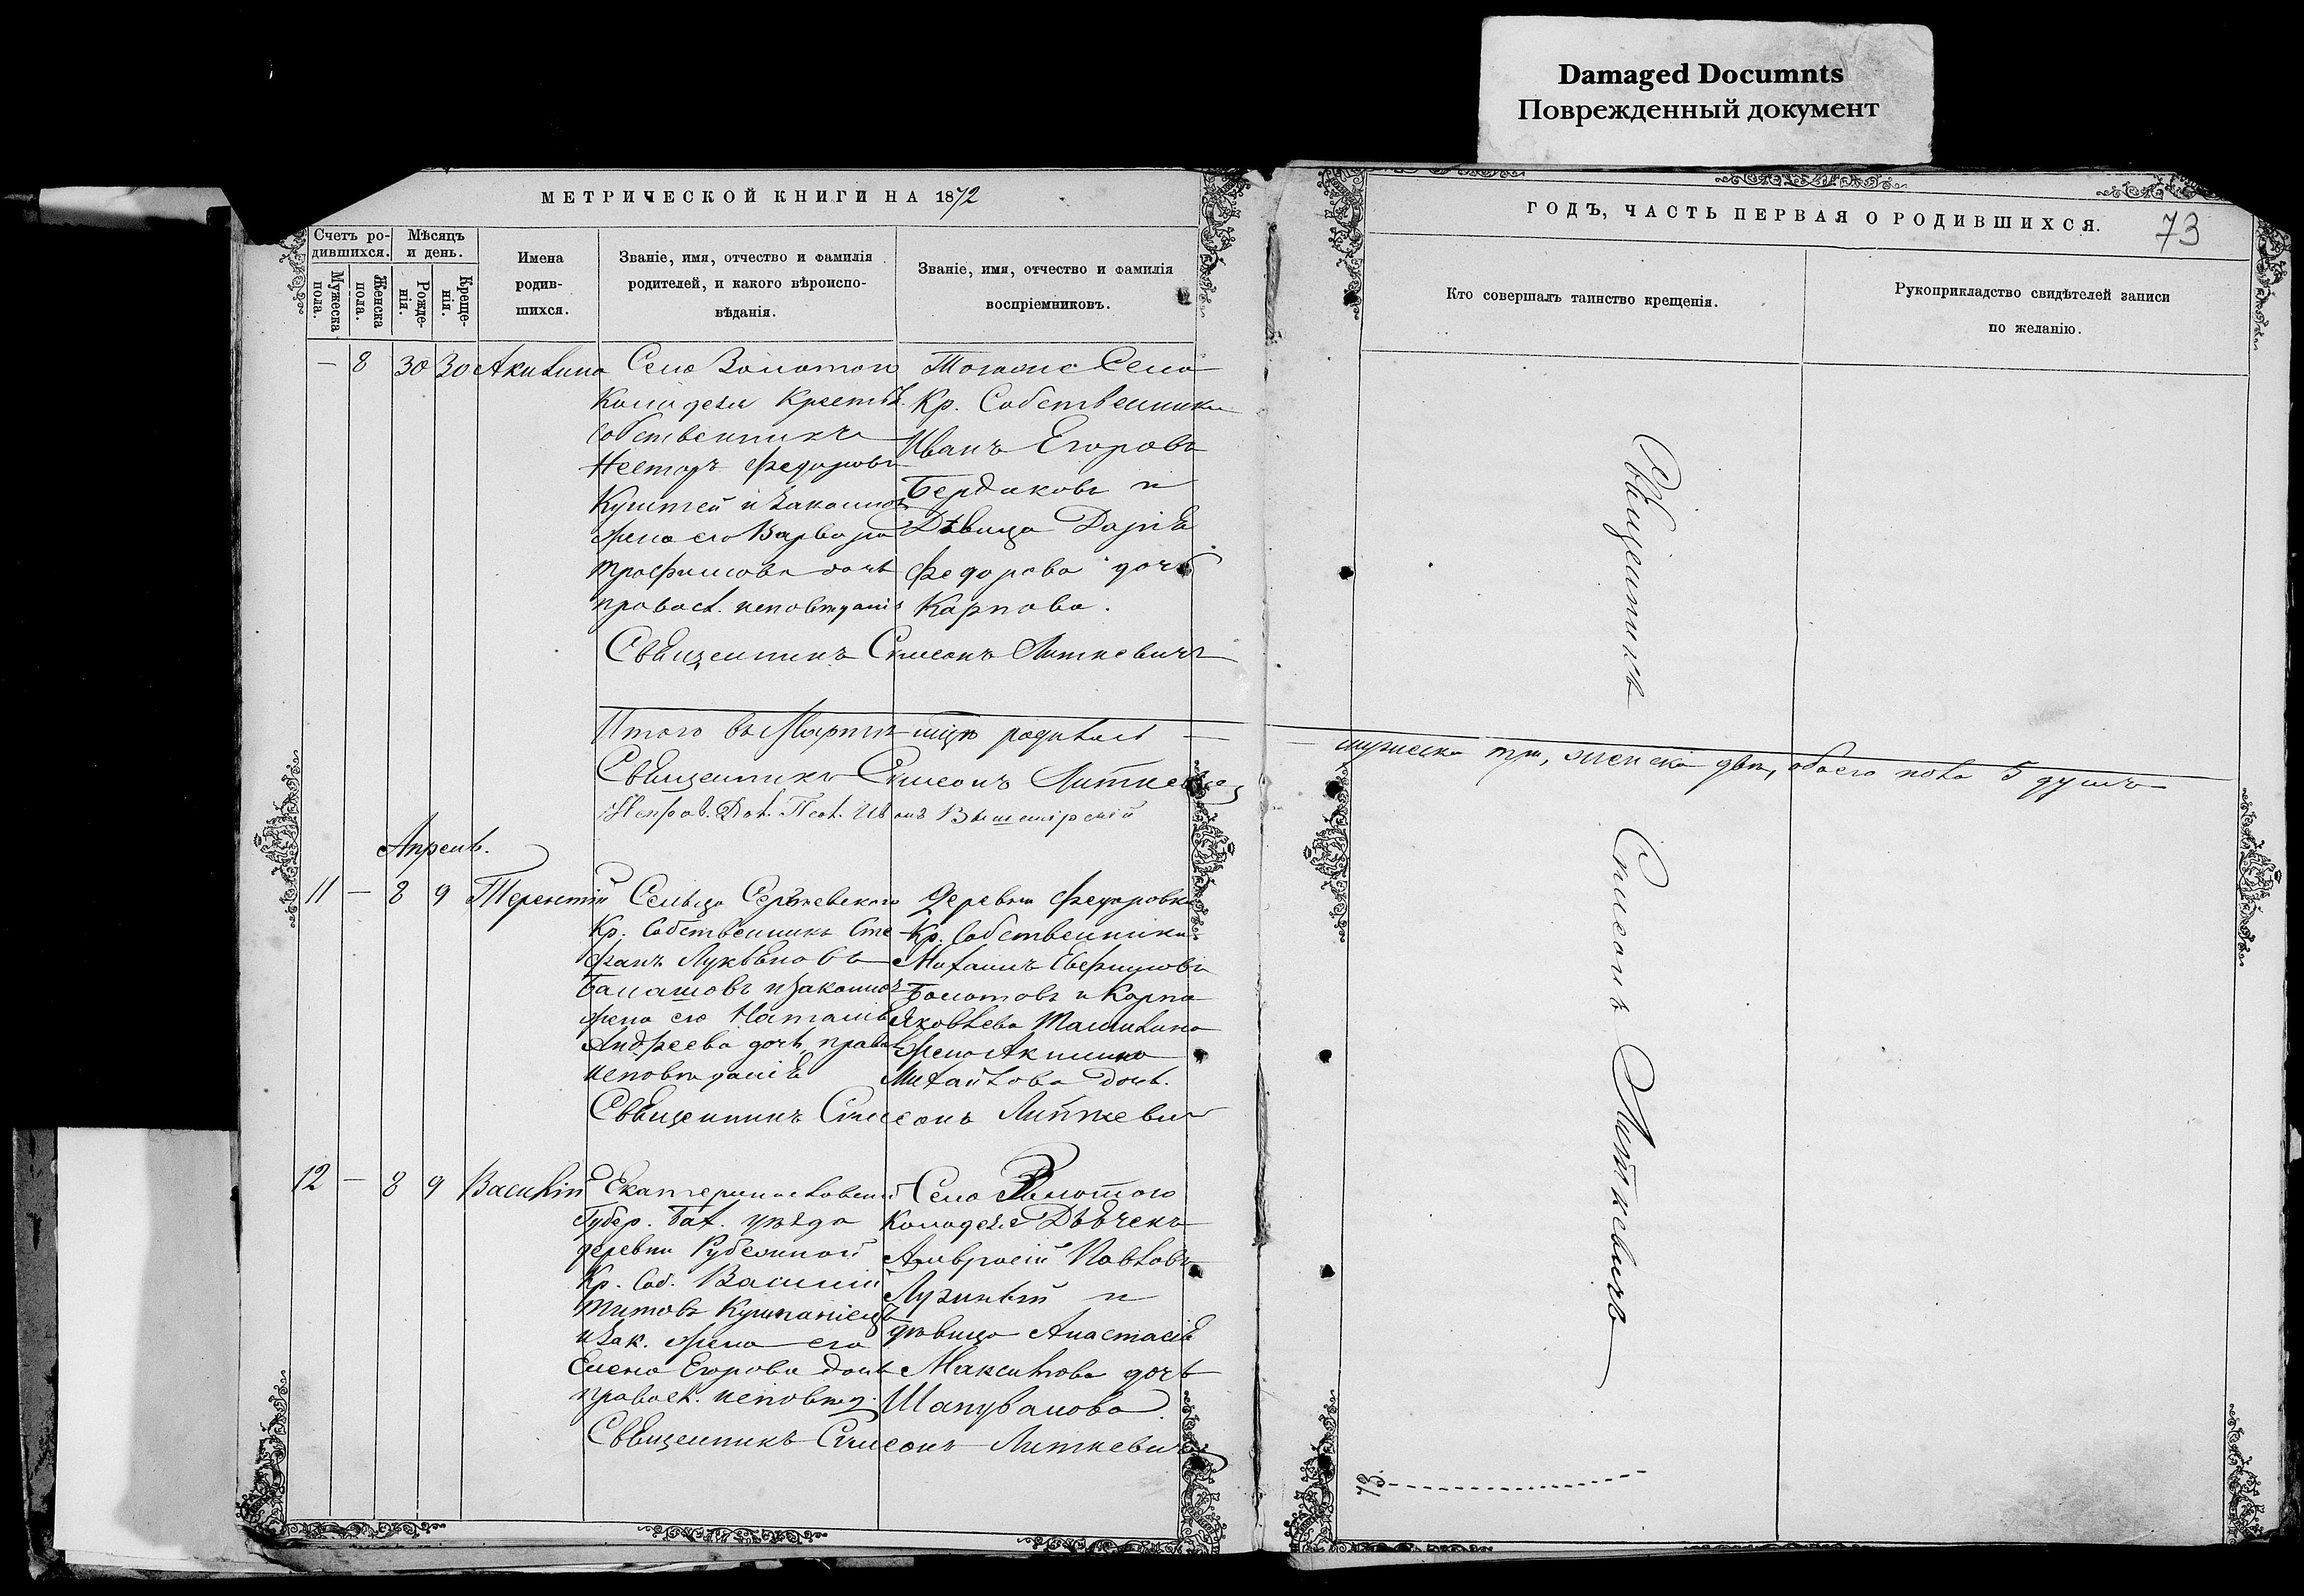 Damaged Documnts
Поврежденный документ
МЕТРИЧЕСКОЙ КНИГИ НА 1872
ГОДЪ, ЧАСТЬ ПЕРВАЯ О РОДИВШИХСЯ.
73
Счетъ ро-
дившихся.
Мужеска
пола.
Женска
пола.
Мѣсяцъ
и день.
Рожде-
нія.
Креще-
нія.
Имена
родив-
шихся.
Званіе, имя, отчество и фамилія
родителей, и какого вѣроиспо-
вѣданія.
Званіе, имя, отчество и фамилія
воспріемниковъ.
Кто совершалъ таинство крещенія.
Рукоприкладство свидѣтелей записи
по желанію.
— 8 30 30 Акилина
Село Золотого
Колодезя Крестья.
собственникъ
Несторъ Федоровъ
и законная
жена его Варвара
Трофимова дочь
правосл. исповѣданія
Тогоже Села
Кр. Собственникъ
Иванъ Егоровъ
Бердиковъ и
Дѣвица Дарія
Федорова дочь
Карпова.
Священникъ Симеонъ Литкевичъ
Итого въ Мартѣ мцѣ родилось —
— мужеска три, женска двѣ, обоего пола 5 душъ
Священникъ Симеонъ Литкевичъ
Псал. Иванъ
Апрель.
11 — 8 9 Терентій
Сельца Сергѣевского
Кр. Собственникъ Сте
фанъ Лукьяновъ
Балашовъ и законная
жена его Наталія
Андреева дочь правосл
исповѣданія
Деревни Федоровки
Кр. Собственники
Михаилъ
Болотовъ и Карпа
Яковлева
жена Акилина
Михайлова дочь.
Священникъ Симеонъ Литкевичъ
12 — 8 9 Василій
Екатеринославской
Губер. Бах. уѣзда
деревни
Кр. Соб. Василій
Титовъ
и зак. жена его
Елена Егорова дочь
правосл. исповѣд.
Село Золотого
Колодезя
Амвросій Павловъ
и
дѣвица Анастасія
Максимова дочь
Шаповалова.
Священникъ Симеонъ Литкевичъ
Священникъ Симеонъ Литкевичъ
73